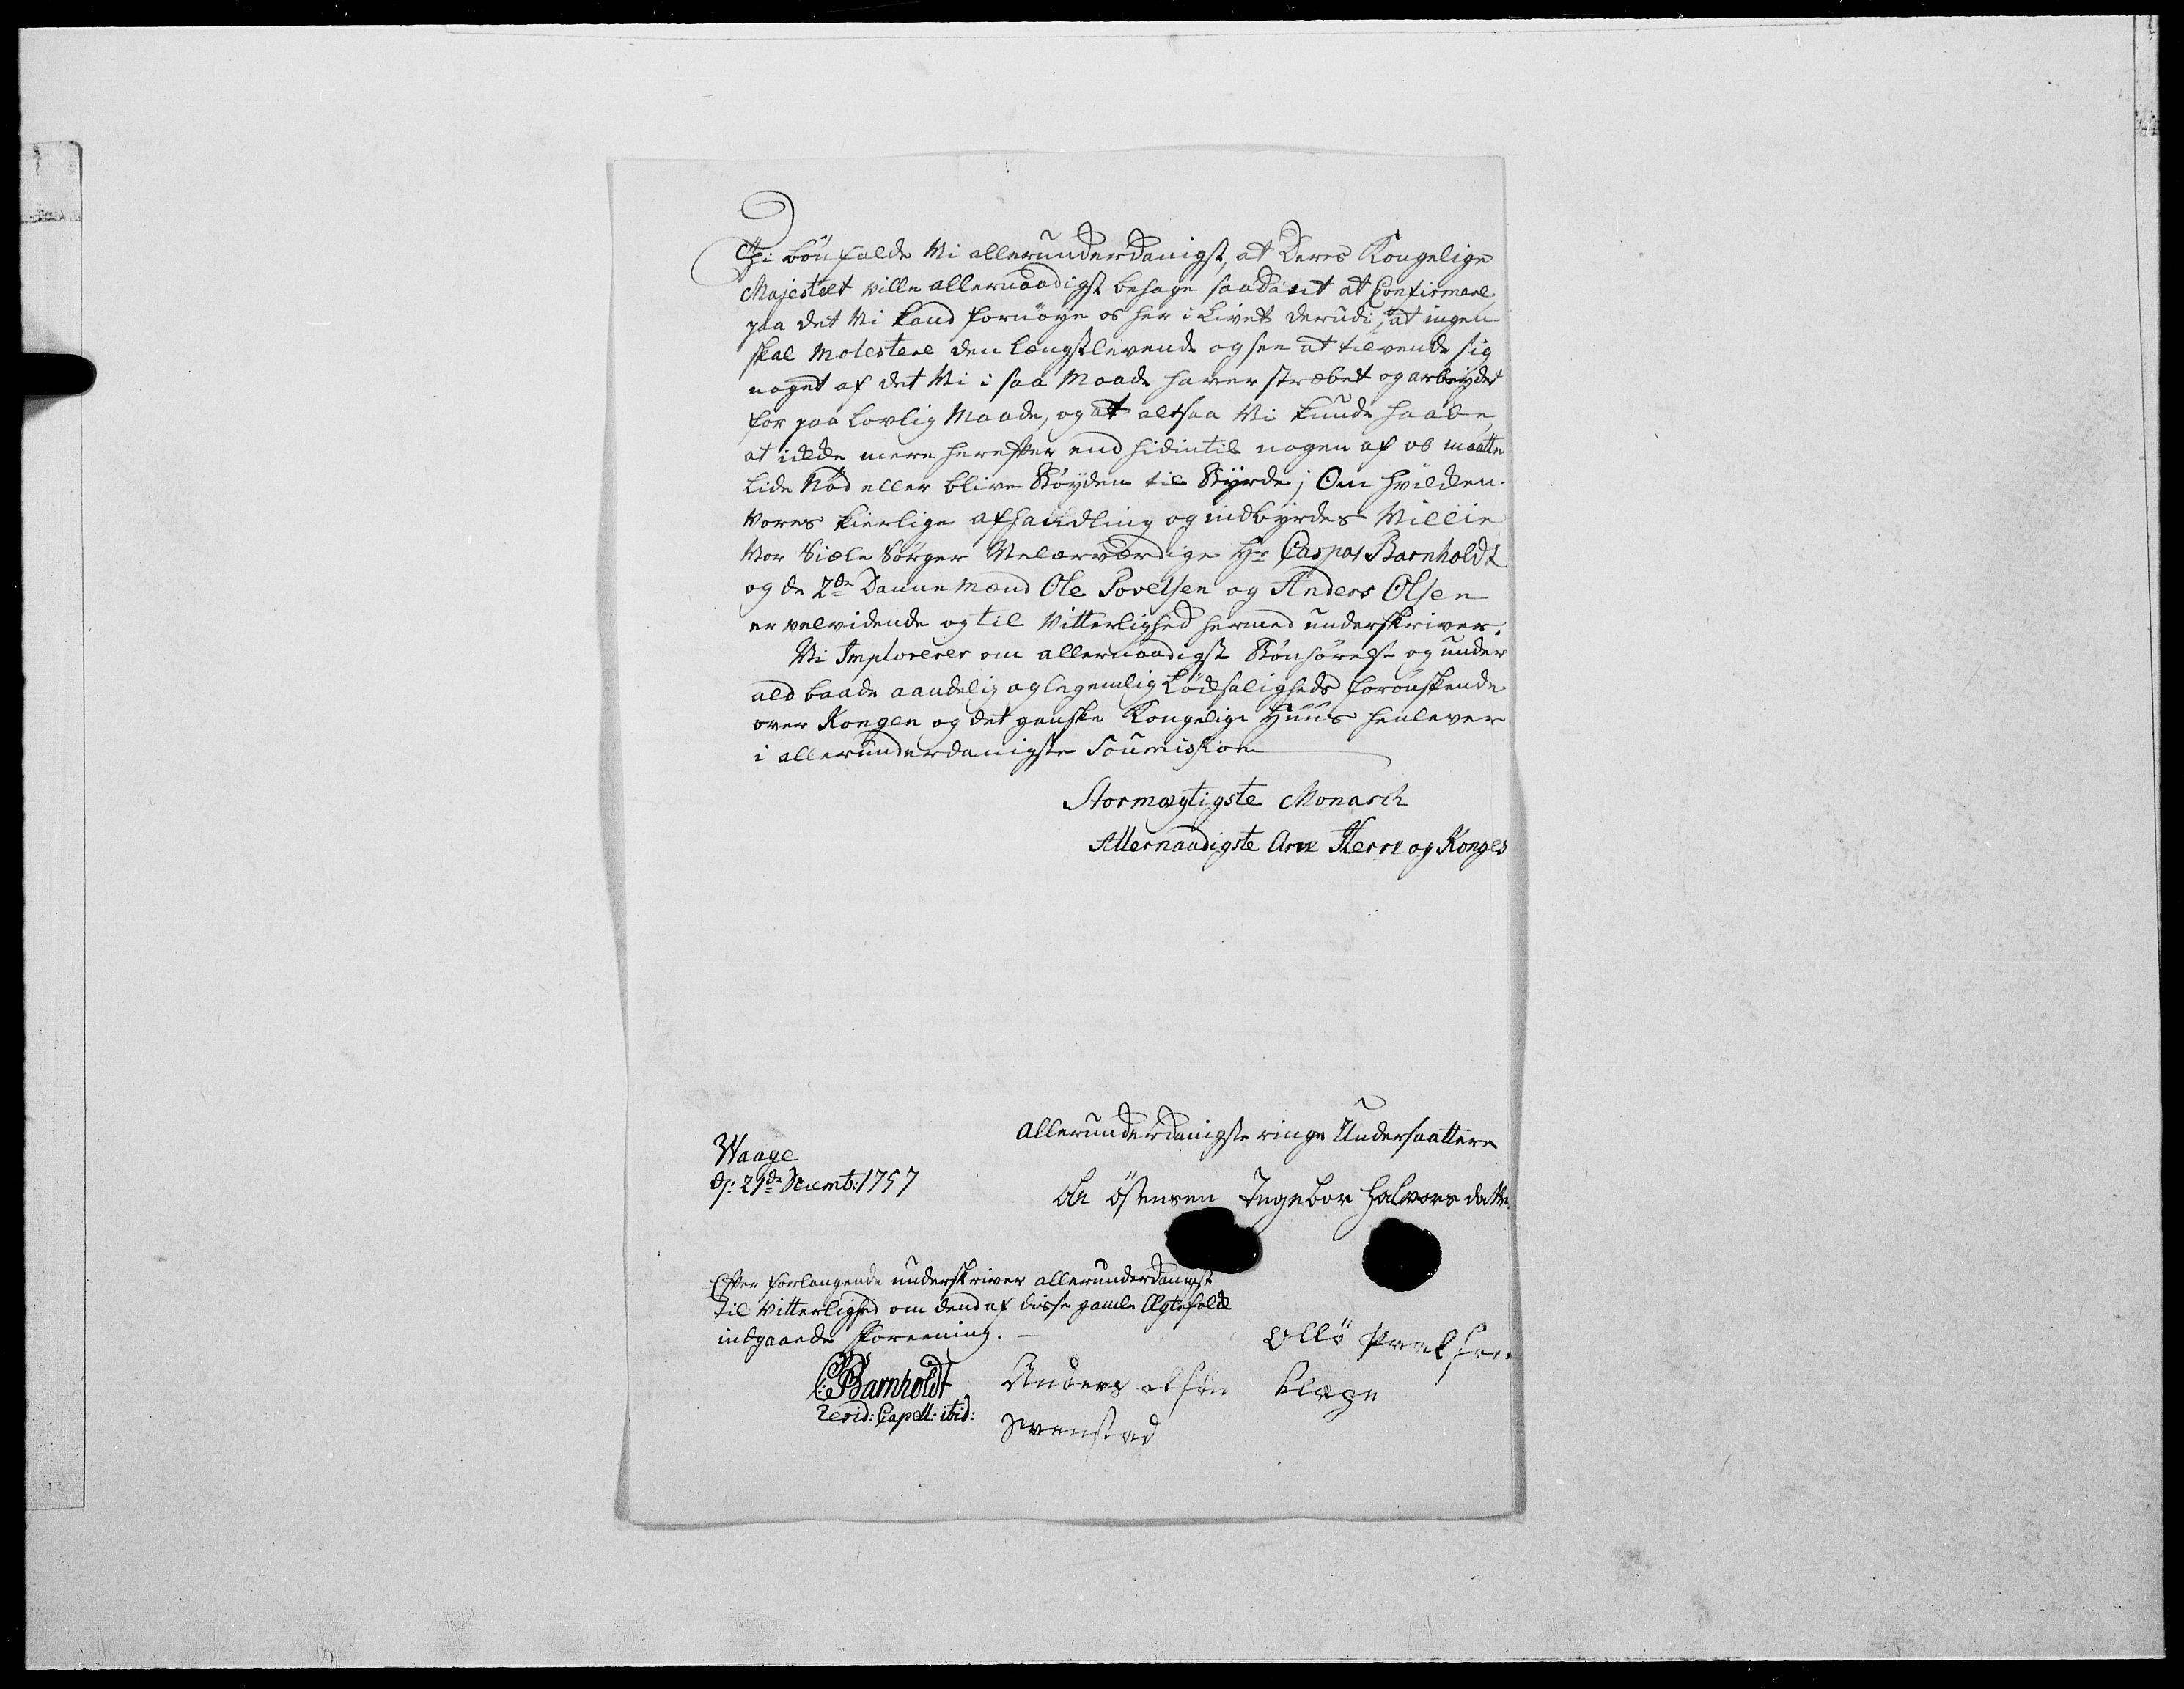 Thi bönfalde Vi allerunderdanigst, at Deres Kongelige
Majestæt ville allernaadigst behage saadant at Confirmere,
paa det Vi kand fornöye os her i Livet derudi, at ingen
skal molestere den Længstlevende og see at tilvende sig
noget af det Vi i saa Maade haver stræbet og arbeydet
for paa lovlig Maade, og at altsaa Vi kunde haabe,
at icke mere herefter end hidintil nogen af os maatte
lide Nöd eller blive Bøyden til Byrde; Om hvilcken
vores kierlige afhandling og indbyrdes Villie
Vor Siæle Sörger Velærværdige Hr Caspar Barnholdt
og de 2de Dannemænd Ole Povelsen og Anders Olsen
er velvidende og til Vitterlighed hermed underskriver.
Vi Implorerer om allernaadigst Bönhörelse og under
ald baade aandelig og legemlig Lödsaligheds forönskende
over Kongen og det ganske Kongelige Huus henlever
i allerunderdanigste Soumission
Stormægtigste Monarch
Allernaadigste Arve Herre og Konges
allerunderdanigste ringe Undersaattere
Waage
d: 21de Decemb: 1757
Ole Östensen Ingebor Halvors datter
Efter forlangende underskriver allerunderdanigst
til Vitterlighed om dend af disse gamle Ægtefolck
indgaaede Foreening.
Ollö Paalsen
CBarnholdt Anders olsön
Resid: Capell: ibid:
Svenstad